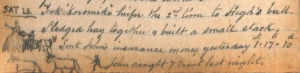 SAT 12. Took "Koromiko" heifer the 2nd time to Hugh's bull
Sledged hay together & built a small stack.
Sent John's insurance money yesterday 1-17-10
John caught 7 trout last night.